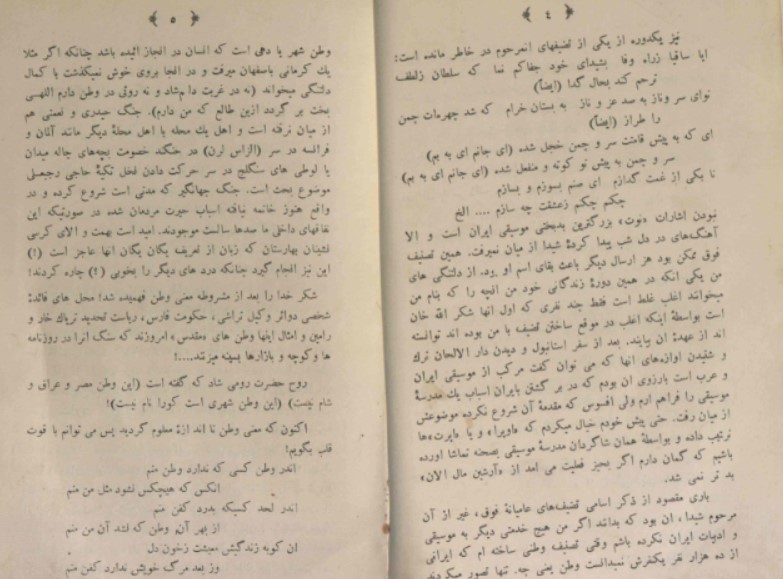 ﴿ ٤ ﴾
نیز یکدوره از یکی از تصنیفهای انمرحوم در خاطر مانده است:
ایا ساقیا زراه وفا بشیدای خود جفاکم نما که سلطان زلطف
ترحم کند بحال گدا (ایضاً)
نوای سر وناز به صد عز و ناز به بستان خرام که شد چهره‌ات چمن
را طراز (ایضاً)
ای که به پیش قامتت سر و چمن خجل شده (ای جانم ای به بم)
سر و چمن به پیش تو کوته و منفعل شده (ای جانم ای به بم)
تا بکی از غمت گدازم ای صنم بسوزم و بسازم
چکنم چکنم زعشقت چه سازم .... الخ
نبودن اشارات «نوت» بزرگترین بدبختی موسیقی ایران است و الا
آهنگ‌های در دل شب پیدا کردهٔ شیدا از میان نمیرفت. همین تصنیف
فوق ممکن بود هر ارسال دیگر باعث بقای اسم او بود. از دلتنگی های
من یکی آنکه در همین دورهٔ زندگانی خود من آنچه را که بنام من
میخوانند اغلب غلط است فقط چند نفری که اول آنها شکر الله خان
است بواسطهٔ اینکه اغلب در موقع ساختن تصنیف با من بوده اند توانسته
اند از عهدهٔ آن بیایند. بعد از سفر استانبول و دیدن دار الالحان ترک
و شنیدن آوازه‌های آنها که می توان گفت مرکب از موسیقی ایران
و عرب است بارزوی آن بودم که در بر گشتن بایران اسباب یک مدرسهٔ
موسیقی را فراهم آرم ولی افسوس که مقدمهٔ آن شروع نکرده موضوعش
از میان رفت. حتی پیش خودم خیال میکردم که «اوپرا» و یا «اپرت»ها
ترتیب داده و بواسطهٔ همان شاگردان مدرسهٔ موسیقی بصحنه تماشا آورده
باشیم که گمان دارم اگر بحیز فعلیت می آمد از «آرشین مال آلان»
بد تر نمی شد.
باری مقصود از ذکر اسامی تصنیف‌های عامیانهٔ فوق، غیر از آن
مرحوم شیدا، آن بود که بدانند اگر من هیچ خدمتی دیگر به موسیقی
و ادبیات ایران نکرده باشم وقتی تصنیف وطنی ساخته ام که ایرانی
از ده هزار نفر یکنفرش نمیدانست وطن یعنی چه. تنها تصور میکردند
﴿ ٥ ﴾
وطن شهر یا دهی است که انسان در آنجا زائیده باشد چنانکه اگر مثلا
یك کرمانی باصفهان میرفت و در آنجا بروی خوش نمیگذشت با کمال
دلتنگی میخواند (نه در غربت دلم شاد و نه روئی در وطن دارم الهی
بخت بر گردد ازین طالع که من دارم). جنگ حیدری و نعمتی هم
از میان نرفته است و اهل یك محله با اهل محلهٔ دیگر مانند آلمان و
فرانسه در سر (الزاس لرن) در جنگند خصومت بچه‌های چاله میدان
با لوطی های سنگلج در سر حرکت دادن نخل تکیهٔ حاجی رجبعلی
موضوع بحث است. جنگ جهانگیر که مدتی است شروع کرده و در
واقع هنوز خاتمه نیافته اسباب حیرت مردمان شده در صورتیکه این
نفاقهای داخلی ما صدها سالست موجودند. امید است بهمت والای کرسی
نشینان بهارستان که زبان از تعریف یکان یکان آنها عاجز است (!)
این نیز انجام گیرد چنانکه درد های دیگر را بخوبی (!) چاره کردند!
شکر خدا را بعد از مشروطه معنی وطن فهمیده شد! محل های فائدهٔ
شخصی دوائر وکیل تراشی، حکومت فارس، ریاست تحدید تریاك خار و
رامین و امثال اینها وطن های «مقدس» امروزند که سنگ آنرا در روزنامه
ها و کوچه و بازارها بسینه میزنند....!
روح حضرت رومی شاد که گفته است (این وطن مصر و عراق و
شام نیست) (این وطن شهری است کورا نام نیست)!
اکنون که معنی وطن تا اندازهٔ معلوم گردید پس می توانم با قوت
قلب بگویم!
اندر وطن کسی که ندارد وطن منم
آنکس که هیچکس نشود مثل من منم
اندر لحد کسیکه بدرد کفن منم
از بهر آن وطن که نشد آن من منم
آن کو به زندگیش معیشت زخون دل
وز بعد مرگ خویش ندارد کفن منم